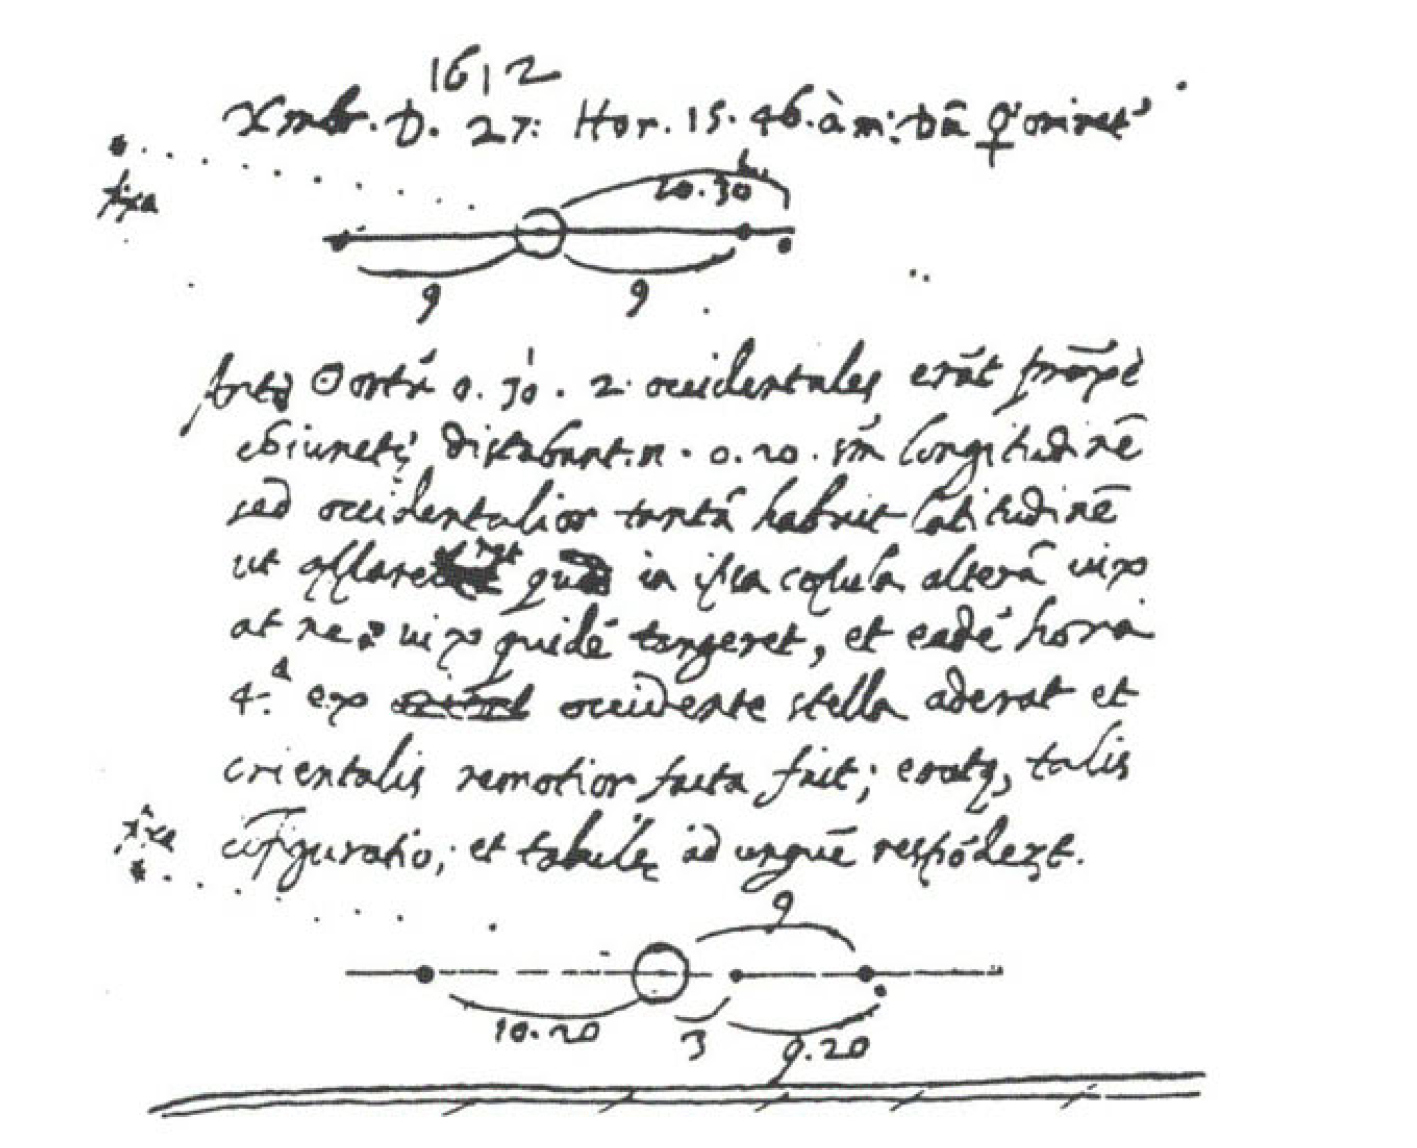 1612
Xmbr. D. 27: Hor. 15. 46. à m: Dũ ♀ oriret'
fixa
10.30
9 9
Ortũ 0. 30. 2 occidentales erãt
cõiunctę distabant. n. 0. 20. sm longitudinẽ
sed occidentalior tantã habuit latitudinẽ
ut in ipsa copula alterã vix
at ne vix quidẽ tangeret, et eadẽ hora
4.ª ex occidente stella aderat et
orientalis remotior facta fuit; eratq, talis
fixa
cõfiguratio; et tabulę ad unguẽ respõdent.
9
10.20 3 9.20